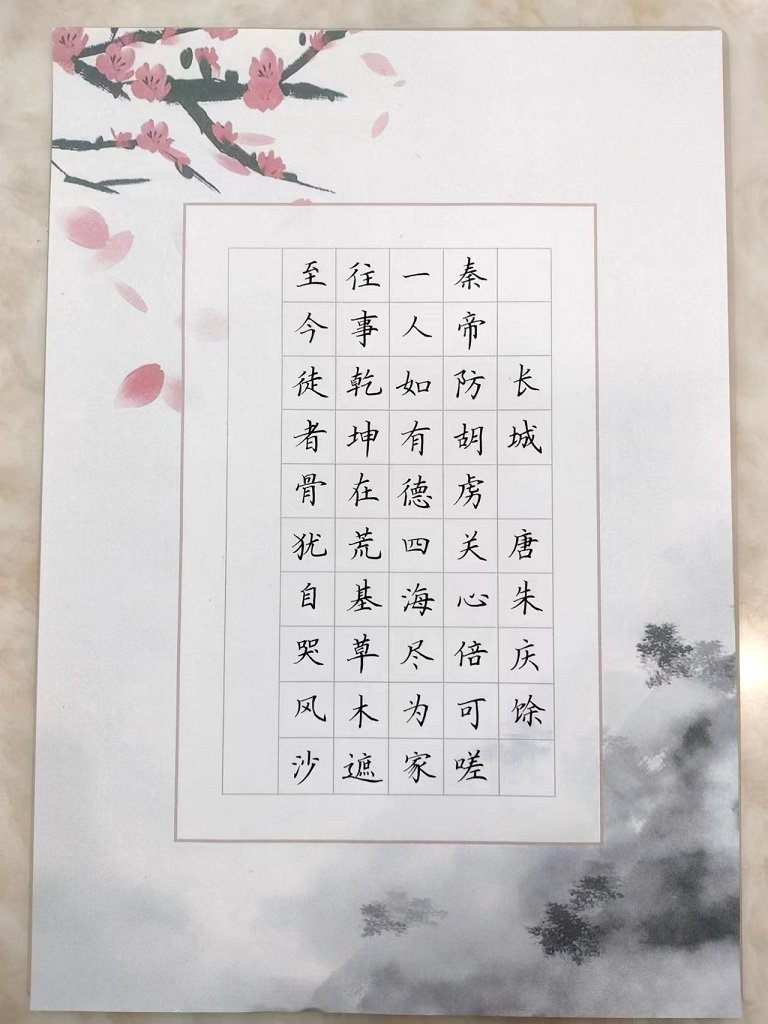 长城 唐朱庆馀
秦帝防胡虏关心倍可嗟
一人如有德四海尽为家
往事乾坤在荒基草木遮
至今徒者骨犹自哭风沙